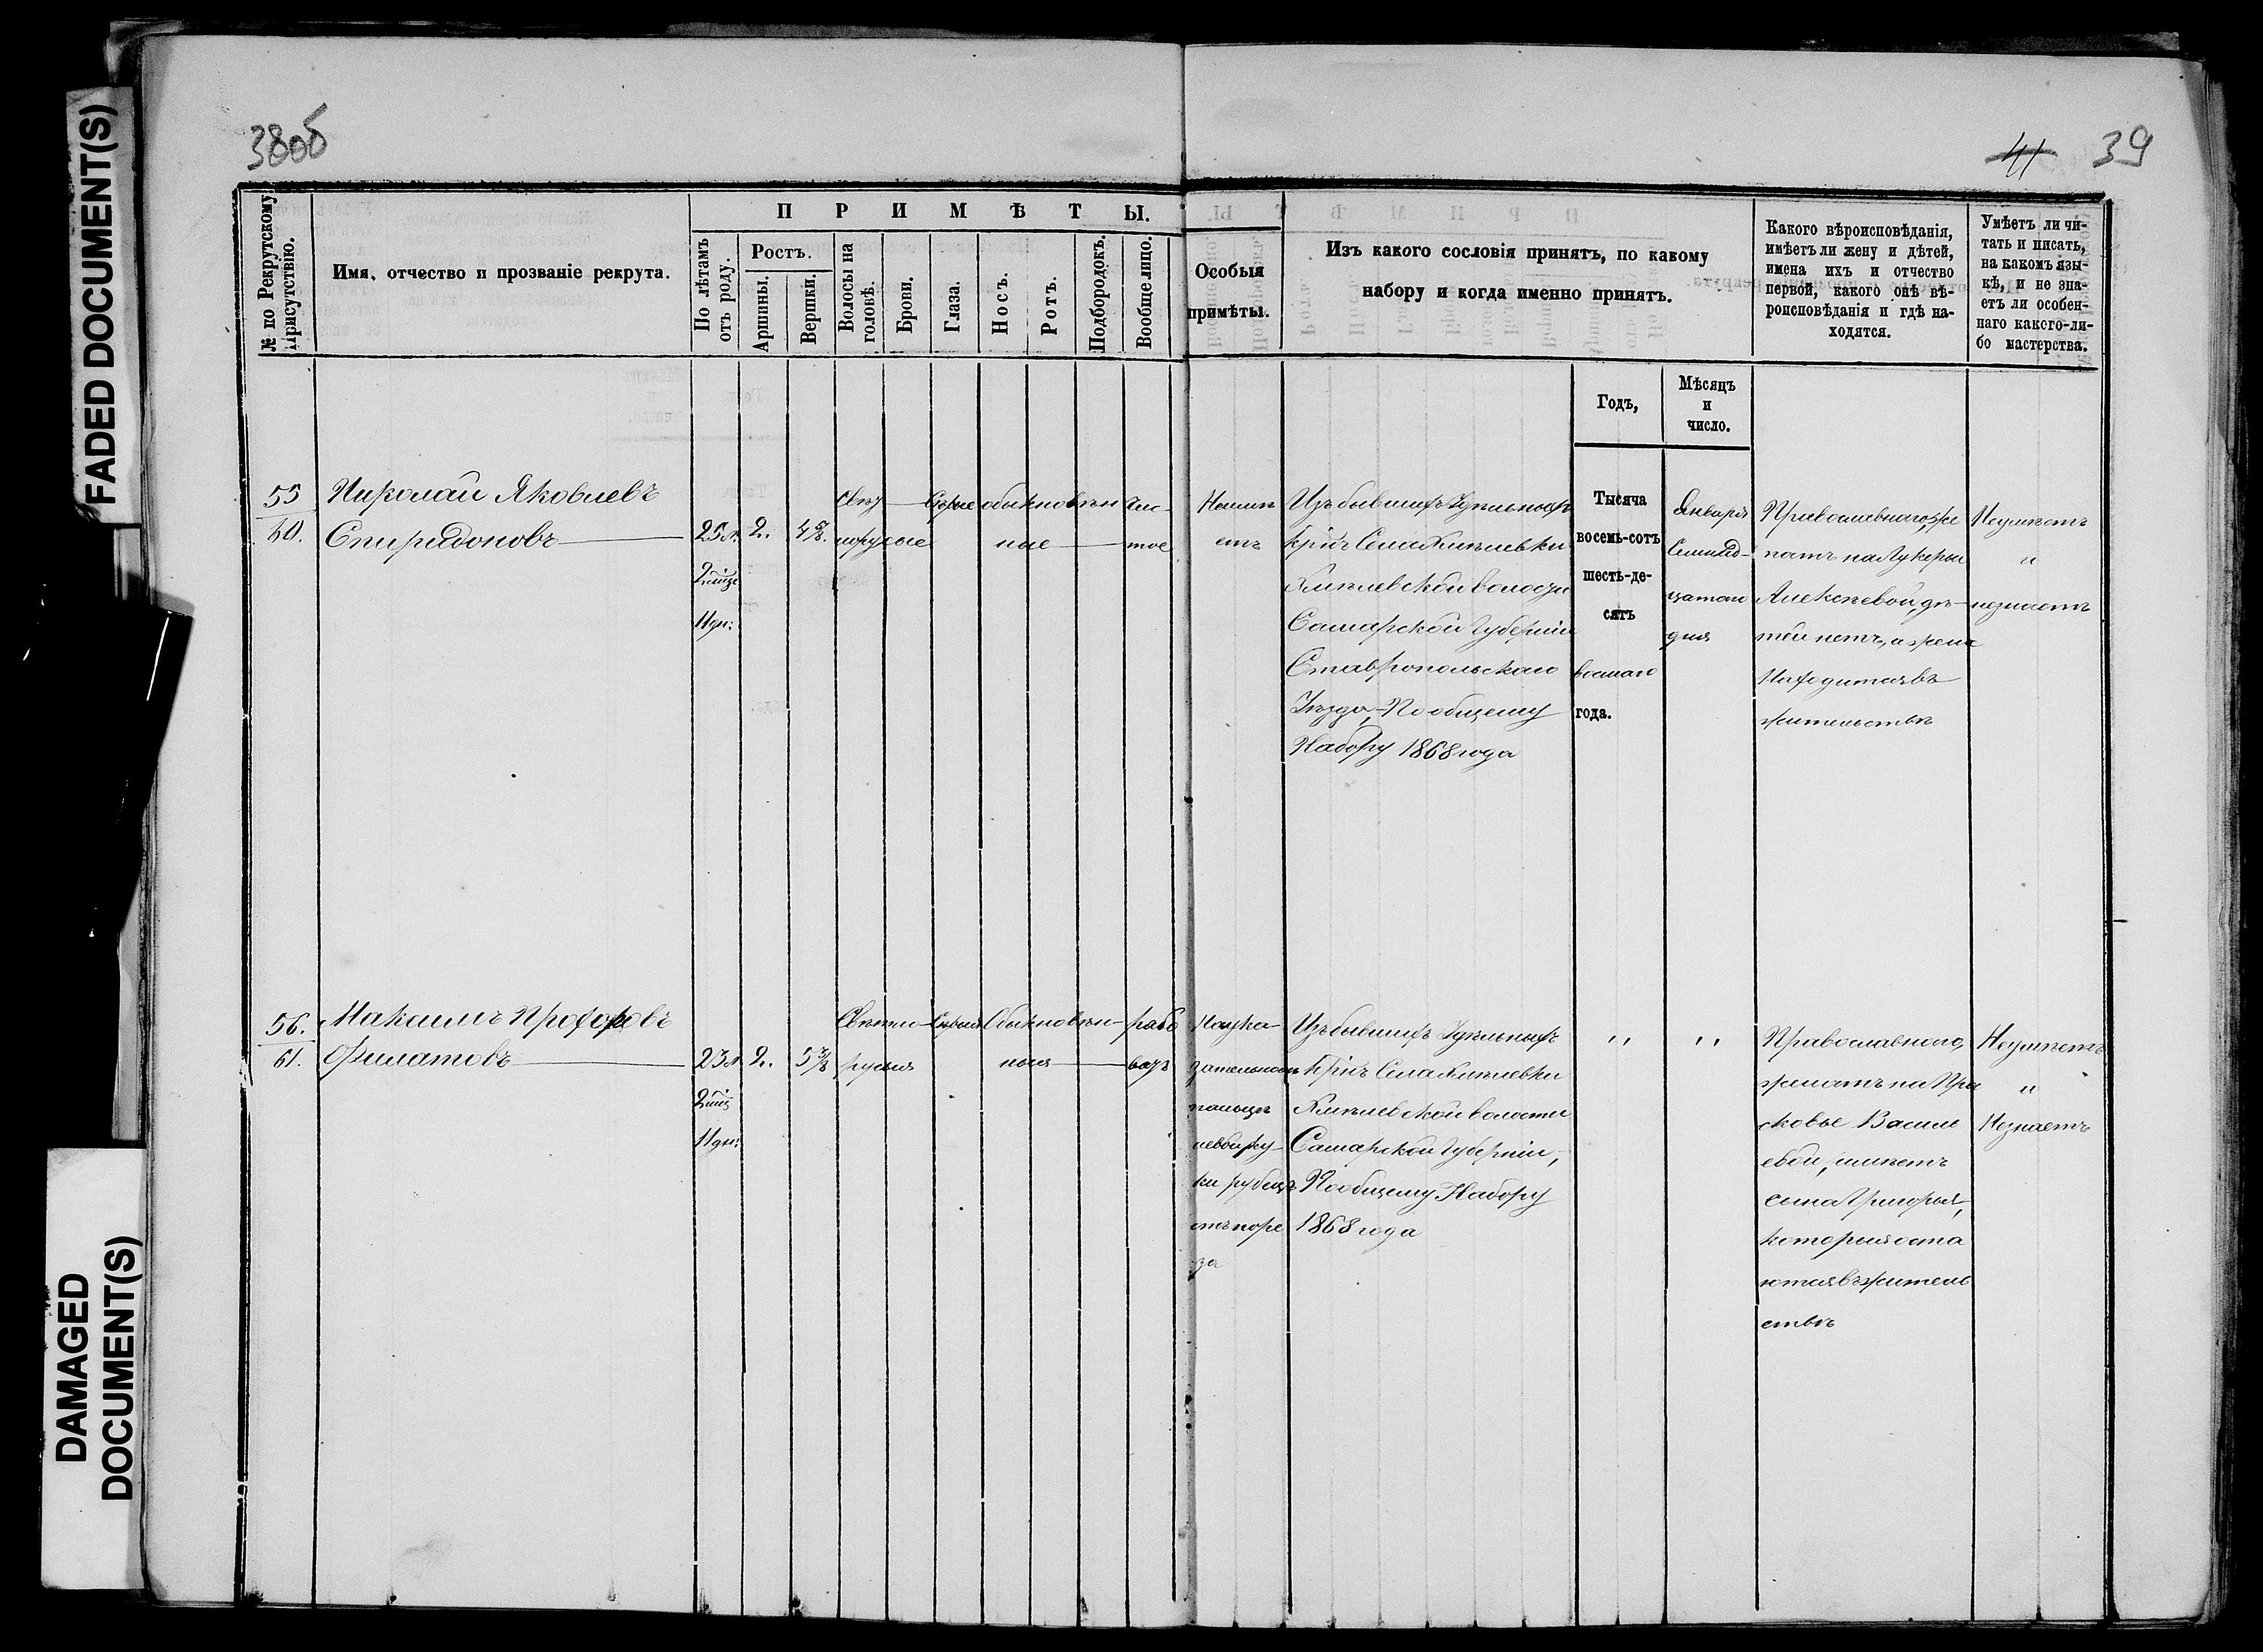 FADED DOCUMENT(S)
DAMAGED DOCUMENT(S)
38об
41 39
№ по Рекрутскому Присутствію.
Имя, отчество и прозваніе рекрута.
ПРИМѢТЫ.
По лѣтамъ отъ роду.
Ростъ.
Аршины.
Вершки.
Волосы на головѣ.
Брови.
Глаза.
Носъ.
Ротъ.
Подбородокъ.
Вообще лицо.
Особыя
примѣты.
Изъ какого сословія принятъ, по какому
набору и когда именно принятъ.
Какого вѣроисповѣданія,
имѣетъ ли жену и дѣтей,
имена ихъ и отчество
первой, какого онѣ вѣ-
роисповѣданія и гдѣ на-
ходятся.
Умѣетъ ли чи-
тать и писать,
на какомъ язы-
кѣ, и не зна-
етъ ли особен-
наго какого-ли-
бо мастерства.
Годъ,
Мѣсяцъ
и
число.
55
60.
Николай Яковлевъ
Спиридоновъ
25 л.
2 мѣс
11 дн:
2.
4 5/8.
Свѣт
лорусые
Сѣрые
обыкновен
ные
чис-
тое
Неимѣ
етъ
Изъ бывшихъ Удѣльных
Крнъ Села Хмѣлевки
Хмѣлевской волости
Самарской Губерніи
Ставропольскаго
Уѣзда, По общему
Набору 1868 года
Тысяча
восемь-сотъ
шесть-де-
сятъ
восмаго
года.
Января
Семнад-
цатаго
дня
Православнаго, же
натъ на Лукерьи
Алексѣевой, дѣ-
тей нетъ, а жена
Находится въ
жительствѣ
Неумѣетъ
"
незнаетъ
56.
61.
Максимъ Прохоровъ
Филатовъ
23 л
2 мѣс
11 дн:
2.
5 3/8
Свѣтло-
русыя
Сѣрыя
Обыкновен-
ныя
рябо
ватъ
На ука-
зательномъ
пальцѣ
левой ру-
ки рубецъ
отъ поре
за
Изъ бывшихъ Удѣльныхъ
Крнъ Села Хмѣлевки
Хмѣлевской волости
Самарской Губерніи,
По общему Набору
1868 года
" "
Православнаго,
женатъ на Пра
сковье Василь
евой, имѣетъ
сына Григорья,
которыя оста
ются въ житель
ствѣ
Неумѣетъ
"
Незнаетъ